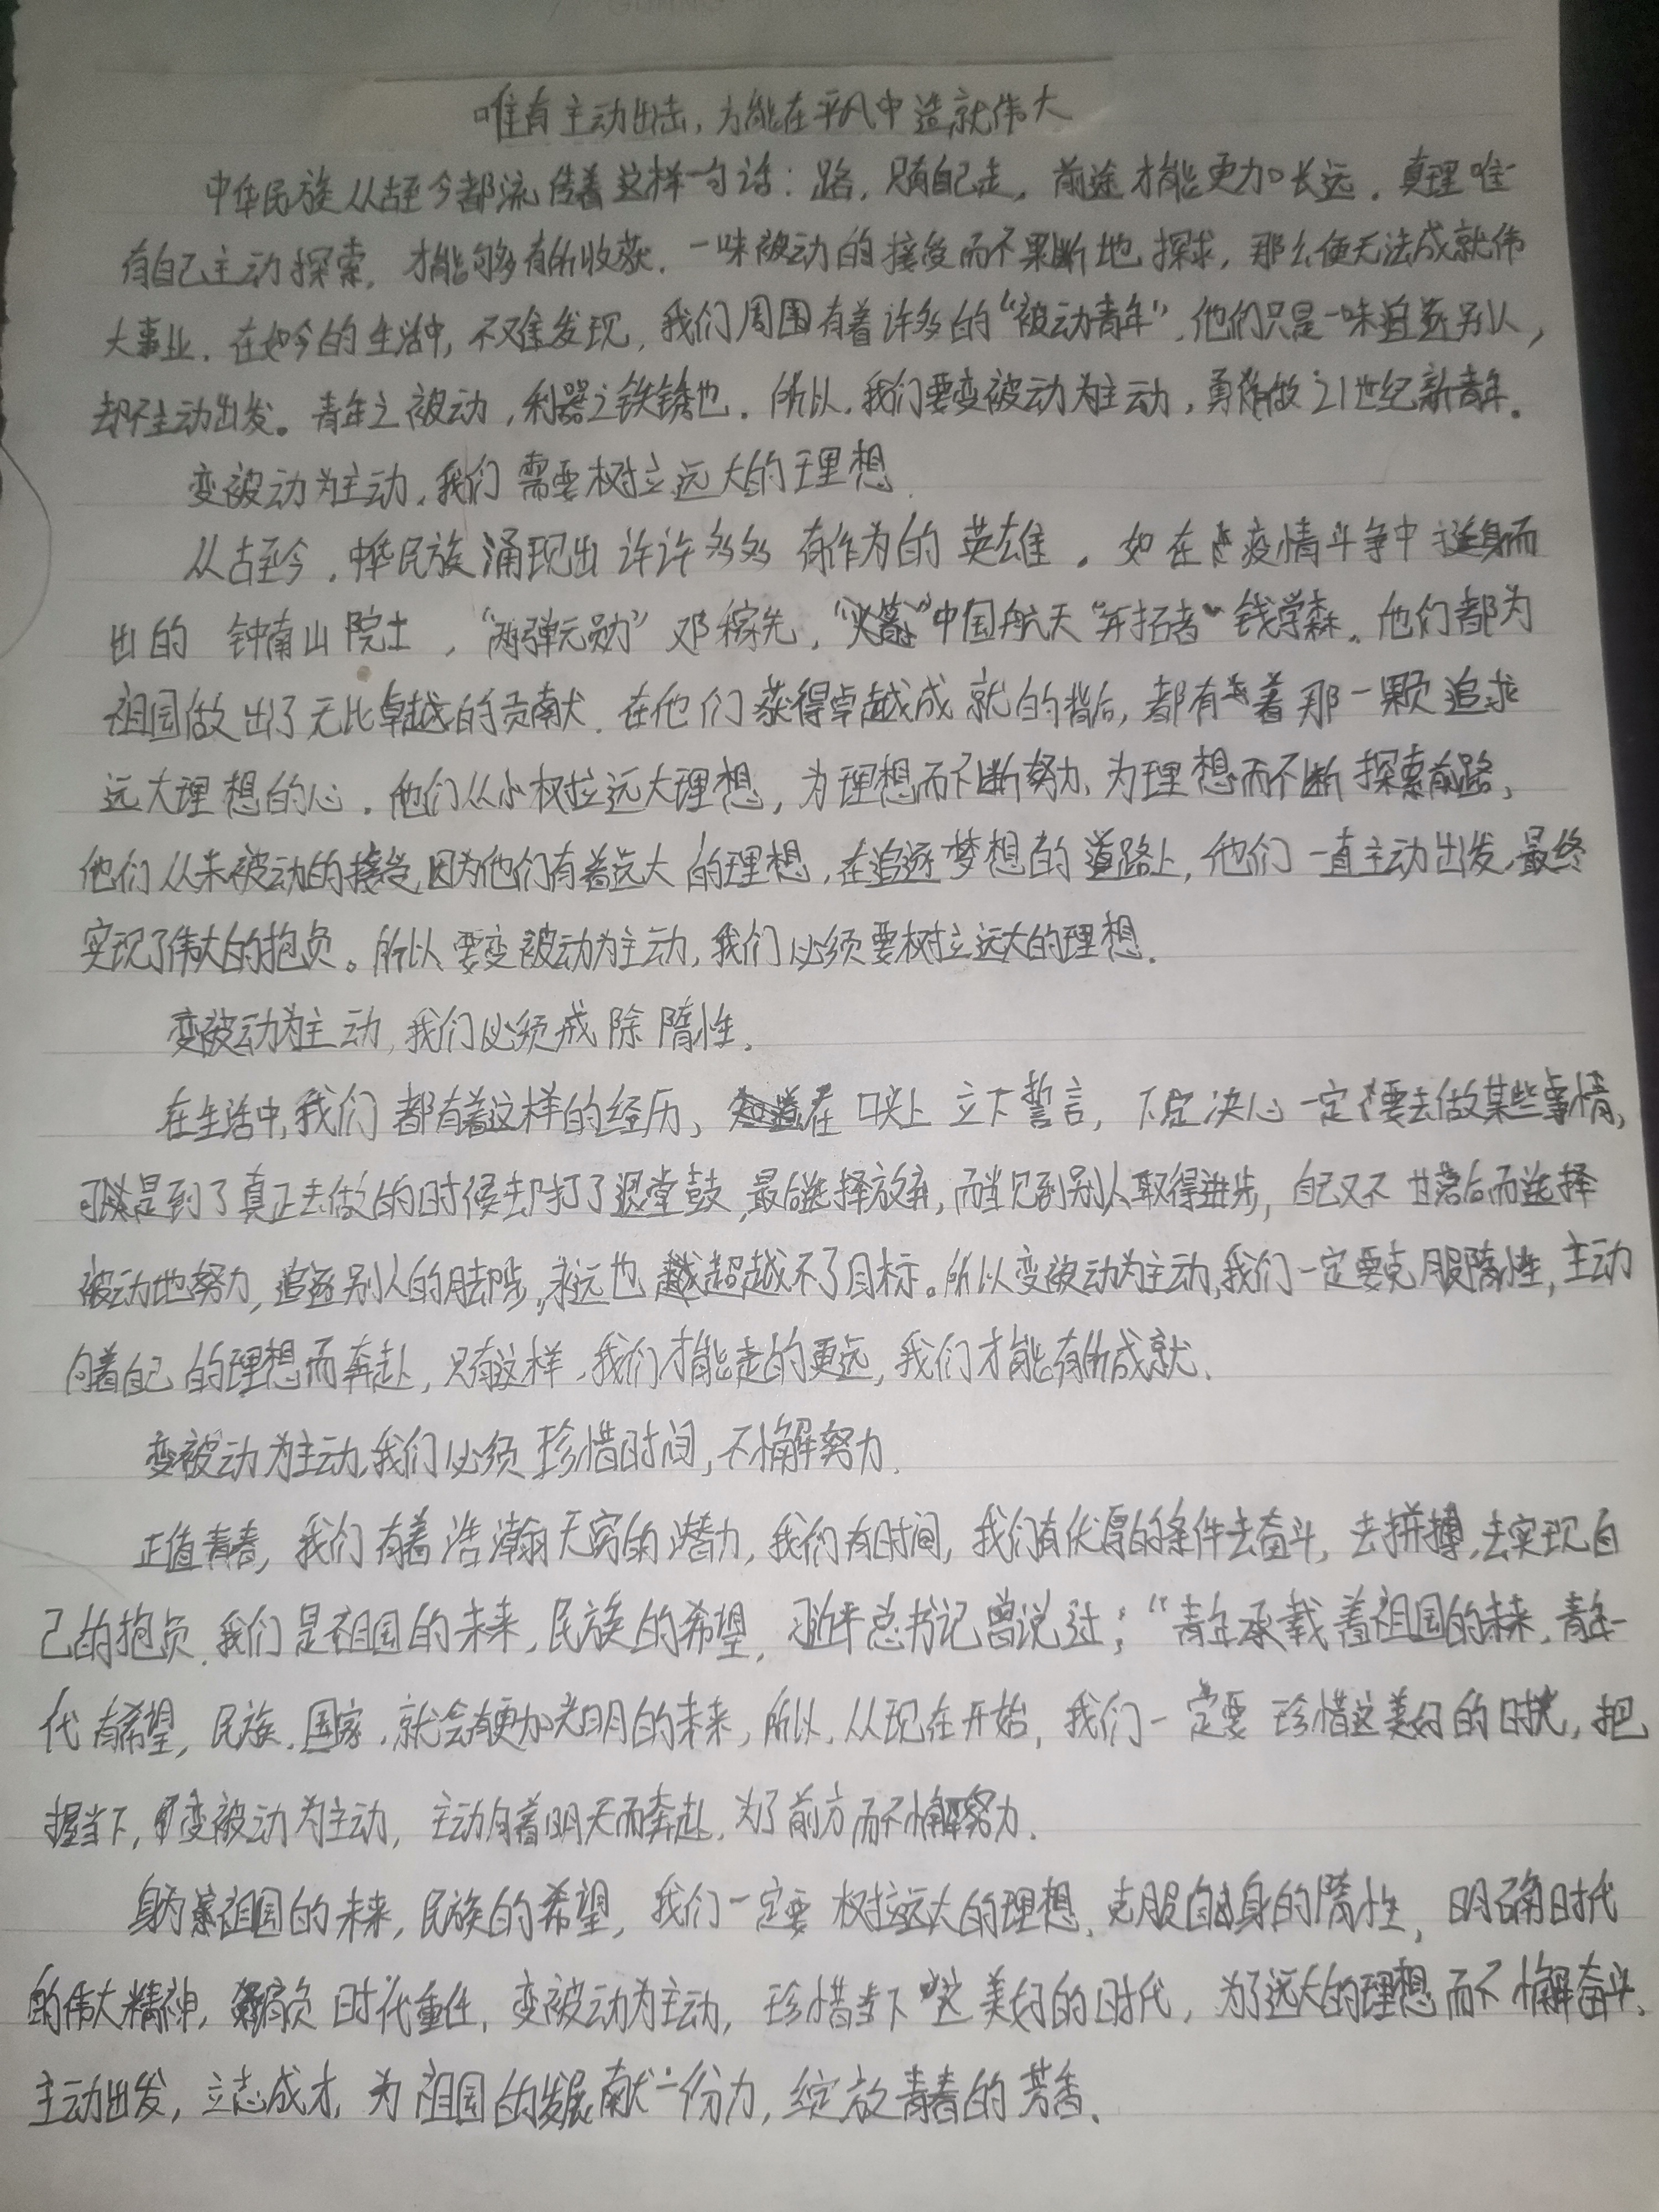 唯有主动出击，方能在平凡中造就伟大
中华民族从古至今都流传着这样一句话：路，只有自己走，前途才能更加长远．真理唯
有自己主动探索，才能够有所收获．一味被动的接受而不果断地探求，那么便无法成就伟
大事业．在如今的生活中，不难发现，我们周围有着许多的“被动青年”．他们只是一味追逐别人，
却不主动出发。青年之被动，利器之铁锈也．所以，我们要变被动为主动，勇作做21世纪新青年．
变被动为主动，我们需要树立远大的理想．
从古至今，中华民族涌现出许许多多有作为的英雄．如在疫情斗争中挺身而
出的钟南山院士，“两弹元勋”邓稼先，中国航天“开拓者”钱学森．他们都为
祖国做出了无比卓越的贡献．在他们获得卓越成就的背后，都有着那一颗追求
远大理想的心．他们从小树立远大理想，为理想而不断努力，为理想而不断探索前路，
他们从未被动的接受，因为他们有着远大的理想，在追逐梦想的道路上，他们一直主动出发，最终
实现了伟大的抱负。所以，要变被动为主动，我们必须要树立远大的理想．
变被动为主动，我们必须戒除隋性．
在生活中，我们都有着这样的经历，在口头上立下誓言，下定决心一定要去做某些事情，
可是到了真正去做的时候却打了退堂鼓，最后选择放弃，而当见到别人取得进步，自己又不甘落后而选择
被动地努力，追逐别人的脚步，永远也超越不了目标。所以变被动为主动，我们一定要克服隋性，主动
向着自己的理想而奔赴，只有这样，我们才能走的更远，我们才能有所成就．
变被动为主动，我们必须珍惜时间，不懈努力．
正值青春，我们有着浩瀚无穷的潜力，我们有时间，我们有优厚的条件去奋斗，去拼搏，去实现自
己的抱负．我们是祖国的未来，民族的希望，习近平总书记曾说过：“青年承载着祖国的未来，青年一
代有希望，民族，国家，就会有更加光明的未来，所以，从现在开始，我们一定要珍惜这美好的时光，把
握当下，变被动为主动，主动向着明天而奔赴，为了前方而不懈努力．
身为祖国的未来，民族的希望，我们一定要树立远大的理想，克服自身的隋性，明确时代
的伟大精神，肩负时代重任，变被动为主动，珍惜当下这美好的时代，为了远大的理想而不懈奋斗．
主动出发，立志成才，为祖国的发展献一份力，绽放青春的芳香．